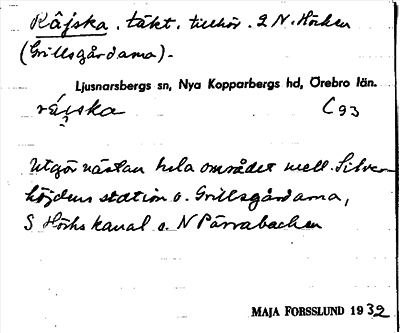 Råjska. täkt. tillhör. 2 N. Hörken
(Grillsgårdarna).
Ljusnarsbergs sn, Nya Kopparbergs hd, Örebro län.
råjska C 93
Utgör nästan hela området mell. Silver-
höjdens station o. Grillsgårdarna,
S Hörks kanal o. N Pärrabacken
MAJA FORSSLUND 1932